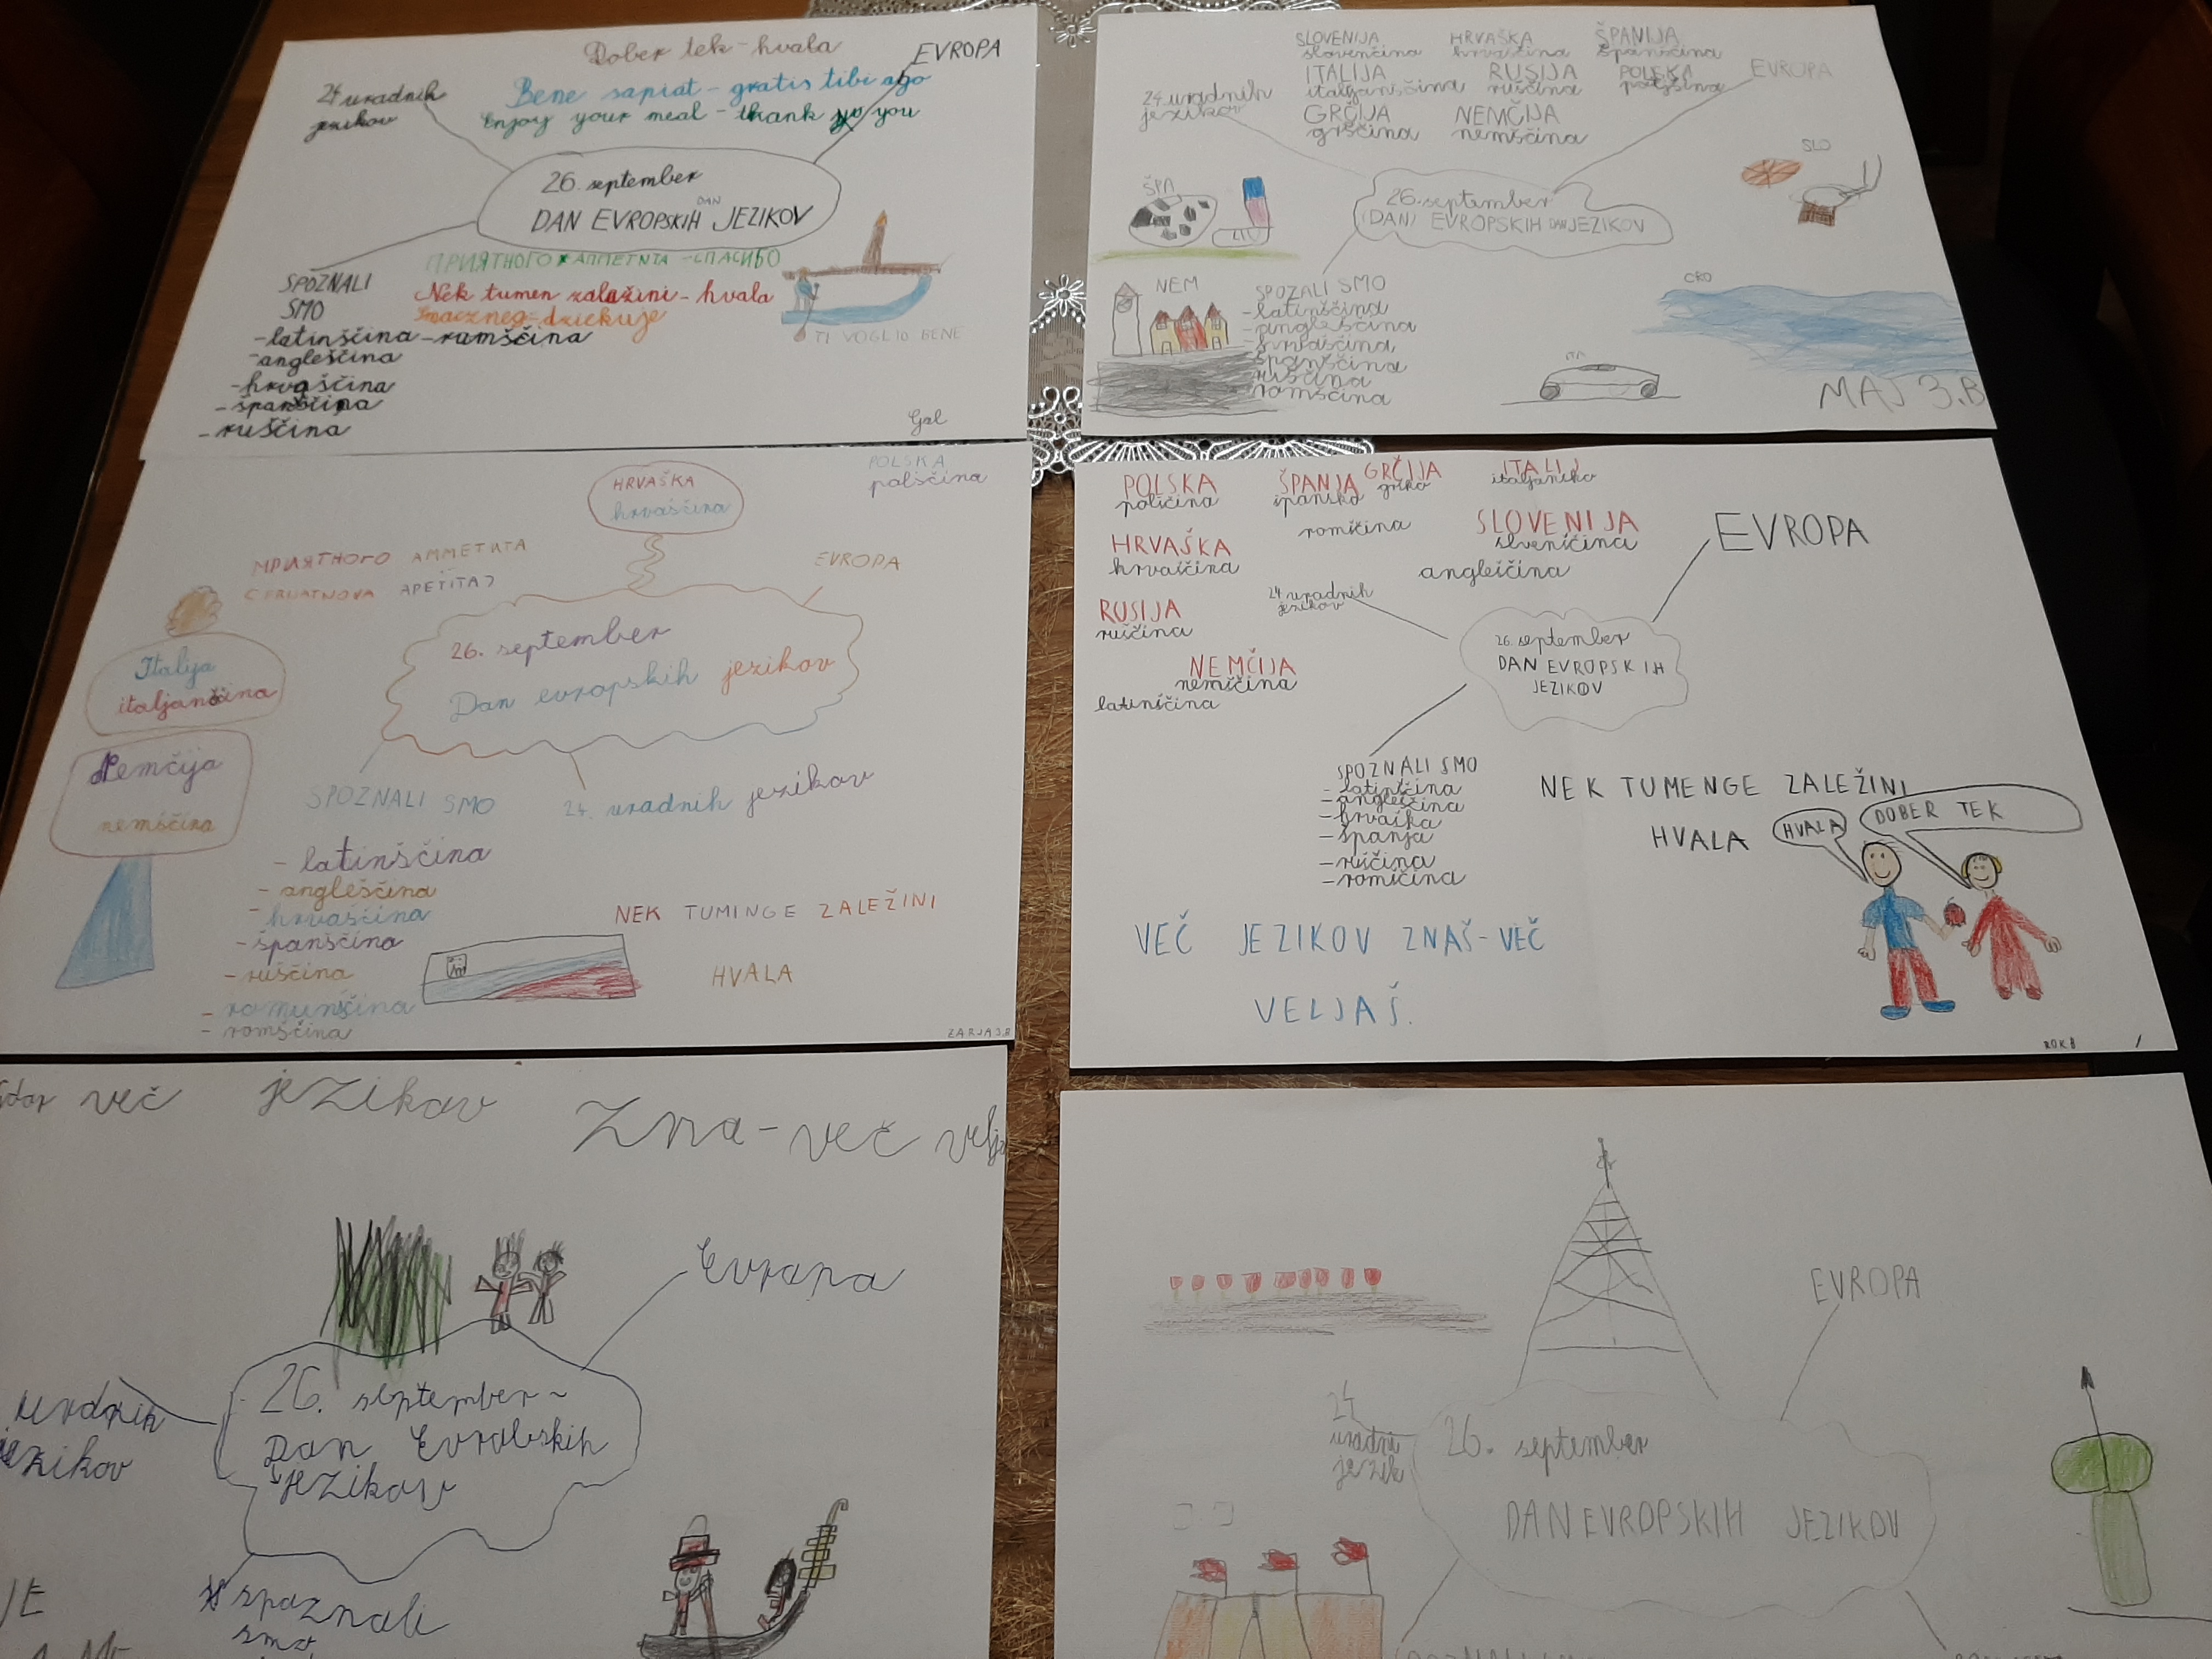 Dober tek - hvala
EVROPA
24 uradnih
jezikov
Bene sapiat - gratis tibi ago
Enjoy your meal - thank yo you
26. september
DAN
DAN EVROPSKIH JEZIKOV
ПРИЯТНОГО АППЕТИТА - СПАСИБО
SPOZNALI
SMO
Nek tumen zalažini - hvala
Smaczneg - dziekuje
- latinščina - romščina
- angleščina
- hrvaščina
- španščina
- ruščina
TI VOGLIO BENE
Gal
SLOVENIJA
slovenščina
HRVAŠKA
hrvaščina
ŠPANIJA
španščina
ITALIJA
italjanščina
RUSIJA
ruščina
POLSKA
poljščina
EVROPA
GRČIJA
grščina
NEMČIJA
nemščina
24 uradnih
jezikov
ŠPA
LIV
SLO
26. september
(DAN) EVROPSKIH DAN JEZIKOV
NEM
CRO
SPOZALI SMO
- latinščina
- angleščina
- hrvaščina
španščina
ruščina
romščina
ITA
MAJ 3.B
HRVAŠKA
hrvaščina
POLSKA
polščina
МРИЯТНОГО АММЕТИТА
EVROPA
Italija
italjanščina
26. september
Dan evropskih jezikov
Nemčija
nemščina
SPOZNALI SMO
24. uradnih jezikov
- latinščina
- angleščina
- hrvaščina
- španščina
- ruščina
- romunščina
- romščina
NEK TUMINGE ZALEŽINI
HVALA
ZARJA 3.B
POLSKA
polščina
ŠPANJA
špansko
GRČIJA
grško
ITALIJ
italjansko
romščina
SLOVENIJA
slvenščina
EVROPA
HRVAŠKA
hrvaščina
angleščina
24 uradnih
jezikov
RUSIJA
ruščina
26. september
DAN EVROPSKIH
JEZIKOV
NEMČIJA
nemščina
latinščina
SPOZNALI SMO
- latinščina
- angleščina
- hrvaška
- španja
- ruščina
- romščina
NEK TUMENGE ZALEŽINI
HVALA
HVALA
DOBER TEK
VEČ JEZIKOV ZNAŠ - VEČ
VELJAŠ.
ROK B
več jezikov Zna - več
Evropa
uradnih
jezikov
26. september ~
Dan Evrobskih
jezikov
spoznali
smo
EVROPA
24
uradni
jezik
26. september
DAN EVROPSKIH JEZIKOV